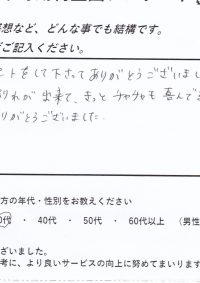 感想など、どんな事でも結構です。
ご記入ください。
をして下さってありがとうございまし
れが出来て、きっとチャチャも喜んで
りがとうございました
方の年代・性別をお教えください
0代 ・ 40代 ・ 50代 ・ 60代以上 (男性
ざいました。
考に、より良いサービスの向上に努めてまいります